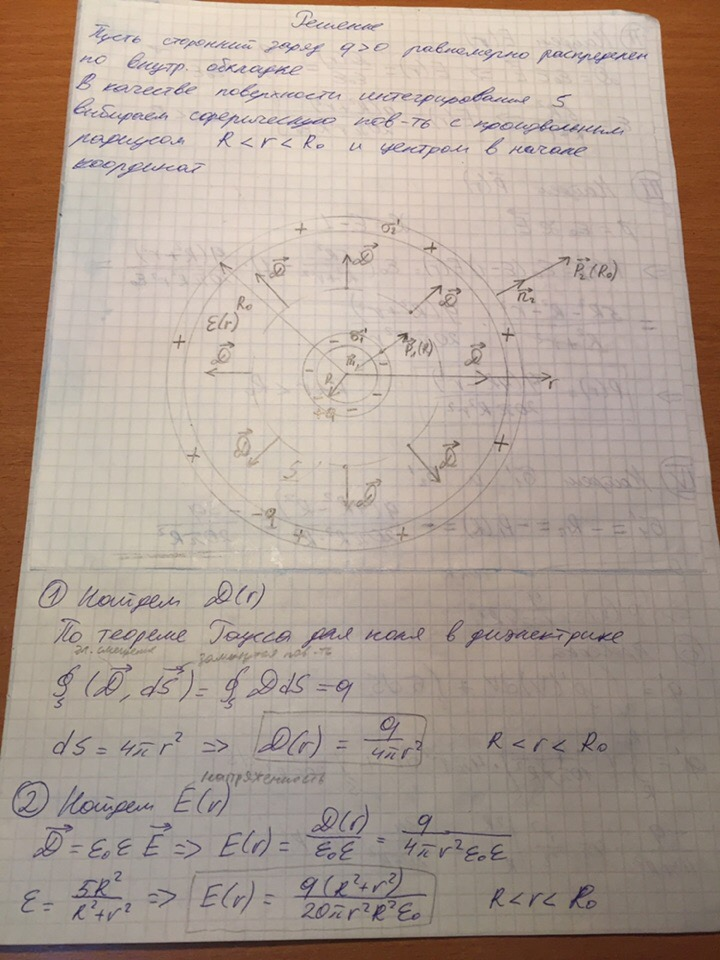 Решение
Пусть сторонний заряд q>0 равномерно распределен
по внутр. обкладке
В качестве поверхности интегрирования S
выбираем сферическую пов-ть с произвольным
радиусом R < r < R₀ и центром в начале
координат
+ σ₂' +
D⃗ D⃗ D⃗ P⃗₂(R₀)
n⃗₂
R₀
ε(r)
+ D⃗ σ₁' P⃗₁(R) D⃗ + r
R
+q
D⃗ D⃗
+ S D⃗ +
-q + +
① Найдем D(r)
По теореме Гаусса для поля в диэлектрике
эл. смещение замкнутая пов-ть
∮ₛ (D⃗, dS⃗) = ∮ₛ D dS = q
dS = 4πr² => D(r) = q/4πr² R < r < R₀
② Найдем E(r)
напряженность
D⃗ = ε₀ε E⃗ => E(r) = D(r)/ε₀ε = q/4πr²ε₀ε
ε = 5R²/R²+r² => E(r) = q(R²+r²)/20πr²R²ε₀ R < r < R₀